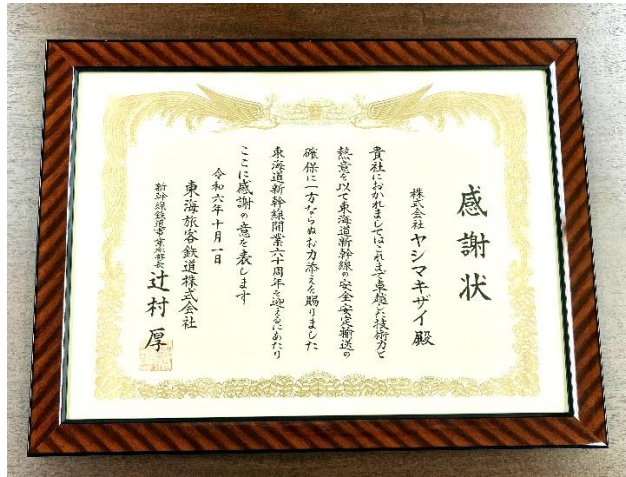 感謝状
株式会社 ヤシマキザイ 殿
貴社におかれましてはこれまで卓越した技術力と
熱意を以て東海道新幹線の安全・安定輸送の
確保に一方ならぬお力添えを賜りました
東海道新幹線開業六十周年を迎えるにあたり
ここに感謝の意を表します
令和六年十月一日
東海旅客鉄道株式会社
新幹線鉄道事業本部長 辻村 厚